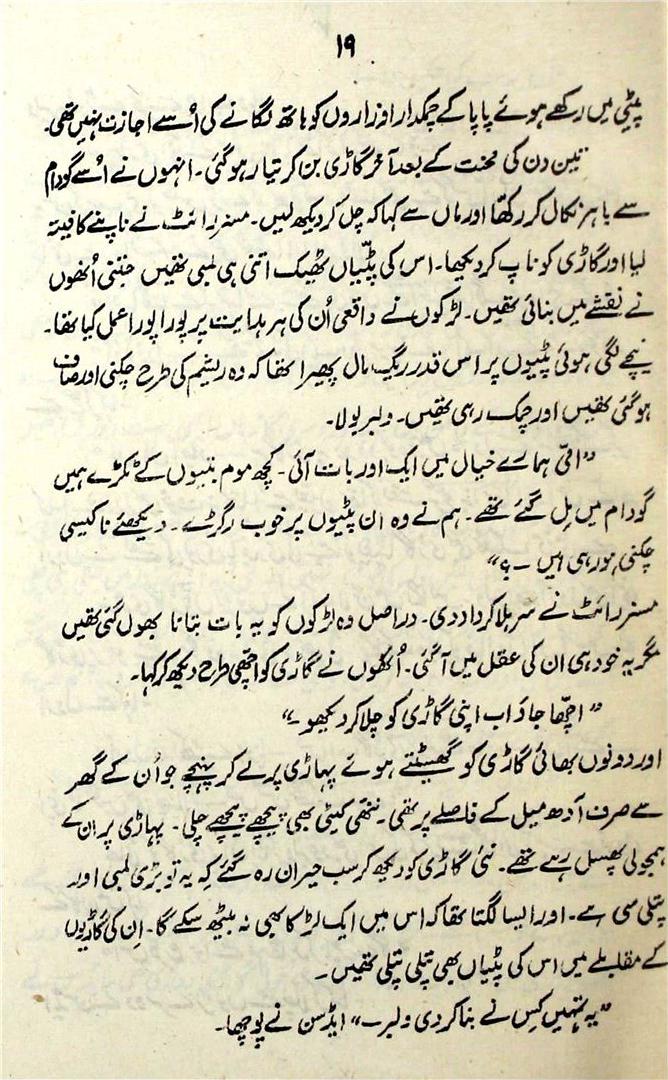 ۱۹
پیٹی میں رکھے ہوئے پاپا کے چمکدار اوزاروں کو ہاتھ لگانے کی اُسے اجازت نہیں تھی۔
تین دن کی محنت کے بعد آخر گاڑی بن کر تیار ہو گئی۔ انہوں نے اُسے گودام
سے باہر نکال کر رکھا اور ماں سے کہا کہ چل کر دیکھ لیں۔ مسز رائٹ نے ناپنے کا فیتہ
لیا اور گاڑی کو ناپ کر دیکھا۔ اس کی پٹّیاں ٹھیک اتنی ہی لمبی تھیں جتنی اُنھوں
نے نقشے میں بنائی تھیں۔ لڑکوں نے واقعی اُن کی ہر ہدایت پر پورا پورا عمل کیا تھا۔
نیچے لگی ہوئی پٹیوں پر اس قدر ریگ مال پھیرا تھا کہ وہ ریشم کی طرح چکنی اور صاف
ہو گئی تھیں اور چمک رہی تھیں۔ ولبر بولا۔
”امّی ہمارے خیال میں ایک اور بات آئی۔ کچھ موم بتیوں کے ٹکڑے ہمیں
گودام میں مِل گئے تھے۔ ہم نے وہ ان پٹیوں پر خوب رگڑے۔ دیکھئے نا کیسی
چکنی ہو رہی ہیں ۔؟“
مسز رائٹ نے سر ہلا کر داد دی۔ دراصل وہ لڑکوں کو یہ بات بتانا بھول گئی تھیں
مگر یہ خود ہی ان کی عقل میں آ گئی۔ اُنھوں نے گاڑی کو اچھی طرح دیکھ کر کہا۔
”اچھا جاؤ اب اپنی گاڑی کو چلا کر دیکھو ۔“
اور دونوں بھائی گاڑی کو گھسیٹتے ہوئے پہاڑی پر لے کر پہنچے جو اُن کے گھر
سے صرف آدھ میل کے فاصلے پر تھی۔ ننھی کیٹی بھی پیچھے پیچھے چلی۔ پہاڑی پر ان کے
ہمجولی پھسل رہے تھے۔ نئی گاڑی کو دیکھ کر سب حیران رہ گئے کہ یہ تو بڑی لمبی اور
پتلی سی ہے۔ اور ایسا لگتا تھا کہ اس میں ایک لڑکا بھی نہ بیٹھ سکے گا۔ اِن کی گاڑیوں
کے مقابلے میں اس کی پٹیاں بھی پتلی پتلی تھیں۔
”یہ تمہیں کِس نے بنا کر دی ولبر۔“ ایڈسن نے پوچھا۔